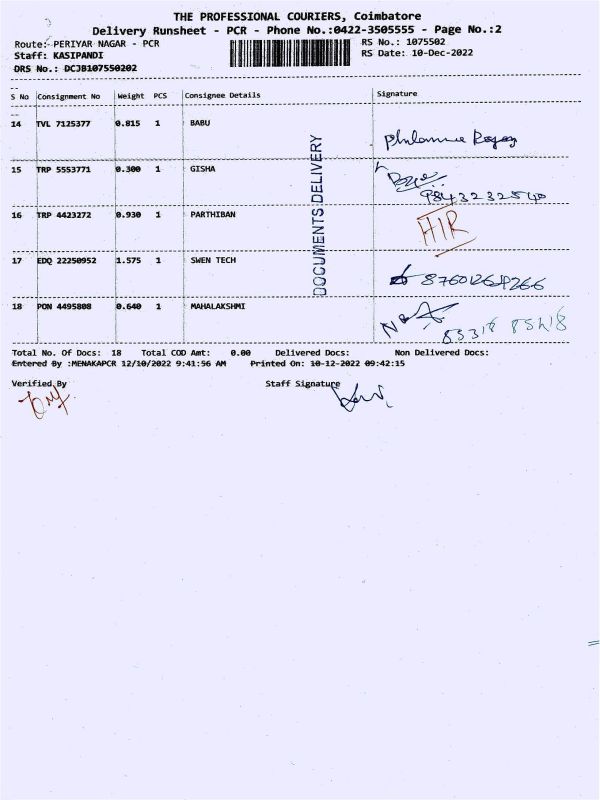 THE PROFESSIONAL COURIERS, Coimbatore
Delivery Runsheet - PCR - Phone No.:0422-3505555 - Page No.:2
Route:- PERIYAR NAGAR - PCR
RS No.: 1075502
Staff: KASIPANDI
RS Date: 10-Dec-2022
DRS No.: DCJB107550202
S No Consignment No Weight PCS Consignee Details Signature
14 TVL 7125377 0.815 1 BABU
15 TRP 5553771 0.300 1 GISHA
9843232540
16 TRP 4423272 0.930 1 PARTHIBAN
17 EDQ 22250952 1.575 1 SWEN TECH
18 PON 4495808 0.640 1 MAHALAKSHMI
DOCUMENTS DELIVERY
Total No. Of Docs: 18 Total COD Amt: 0.00 Delivered Docs: Non Delivered Docs:
Entered By :MENAKAPCR 12/10/2022 9:41:56 AM Printed On: 10-12-2022 09:42:15
Verified By Staff Signature